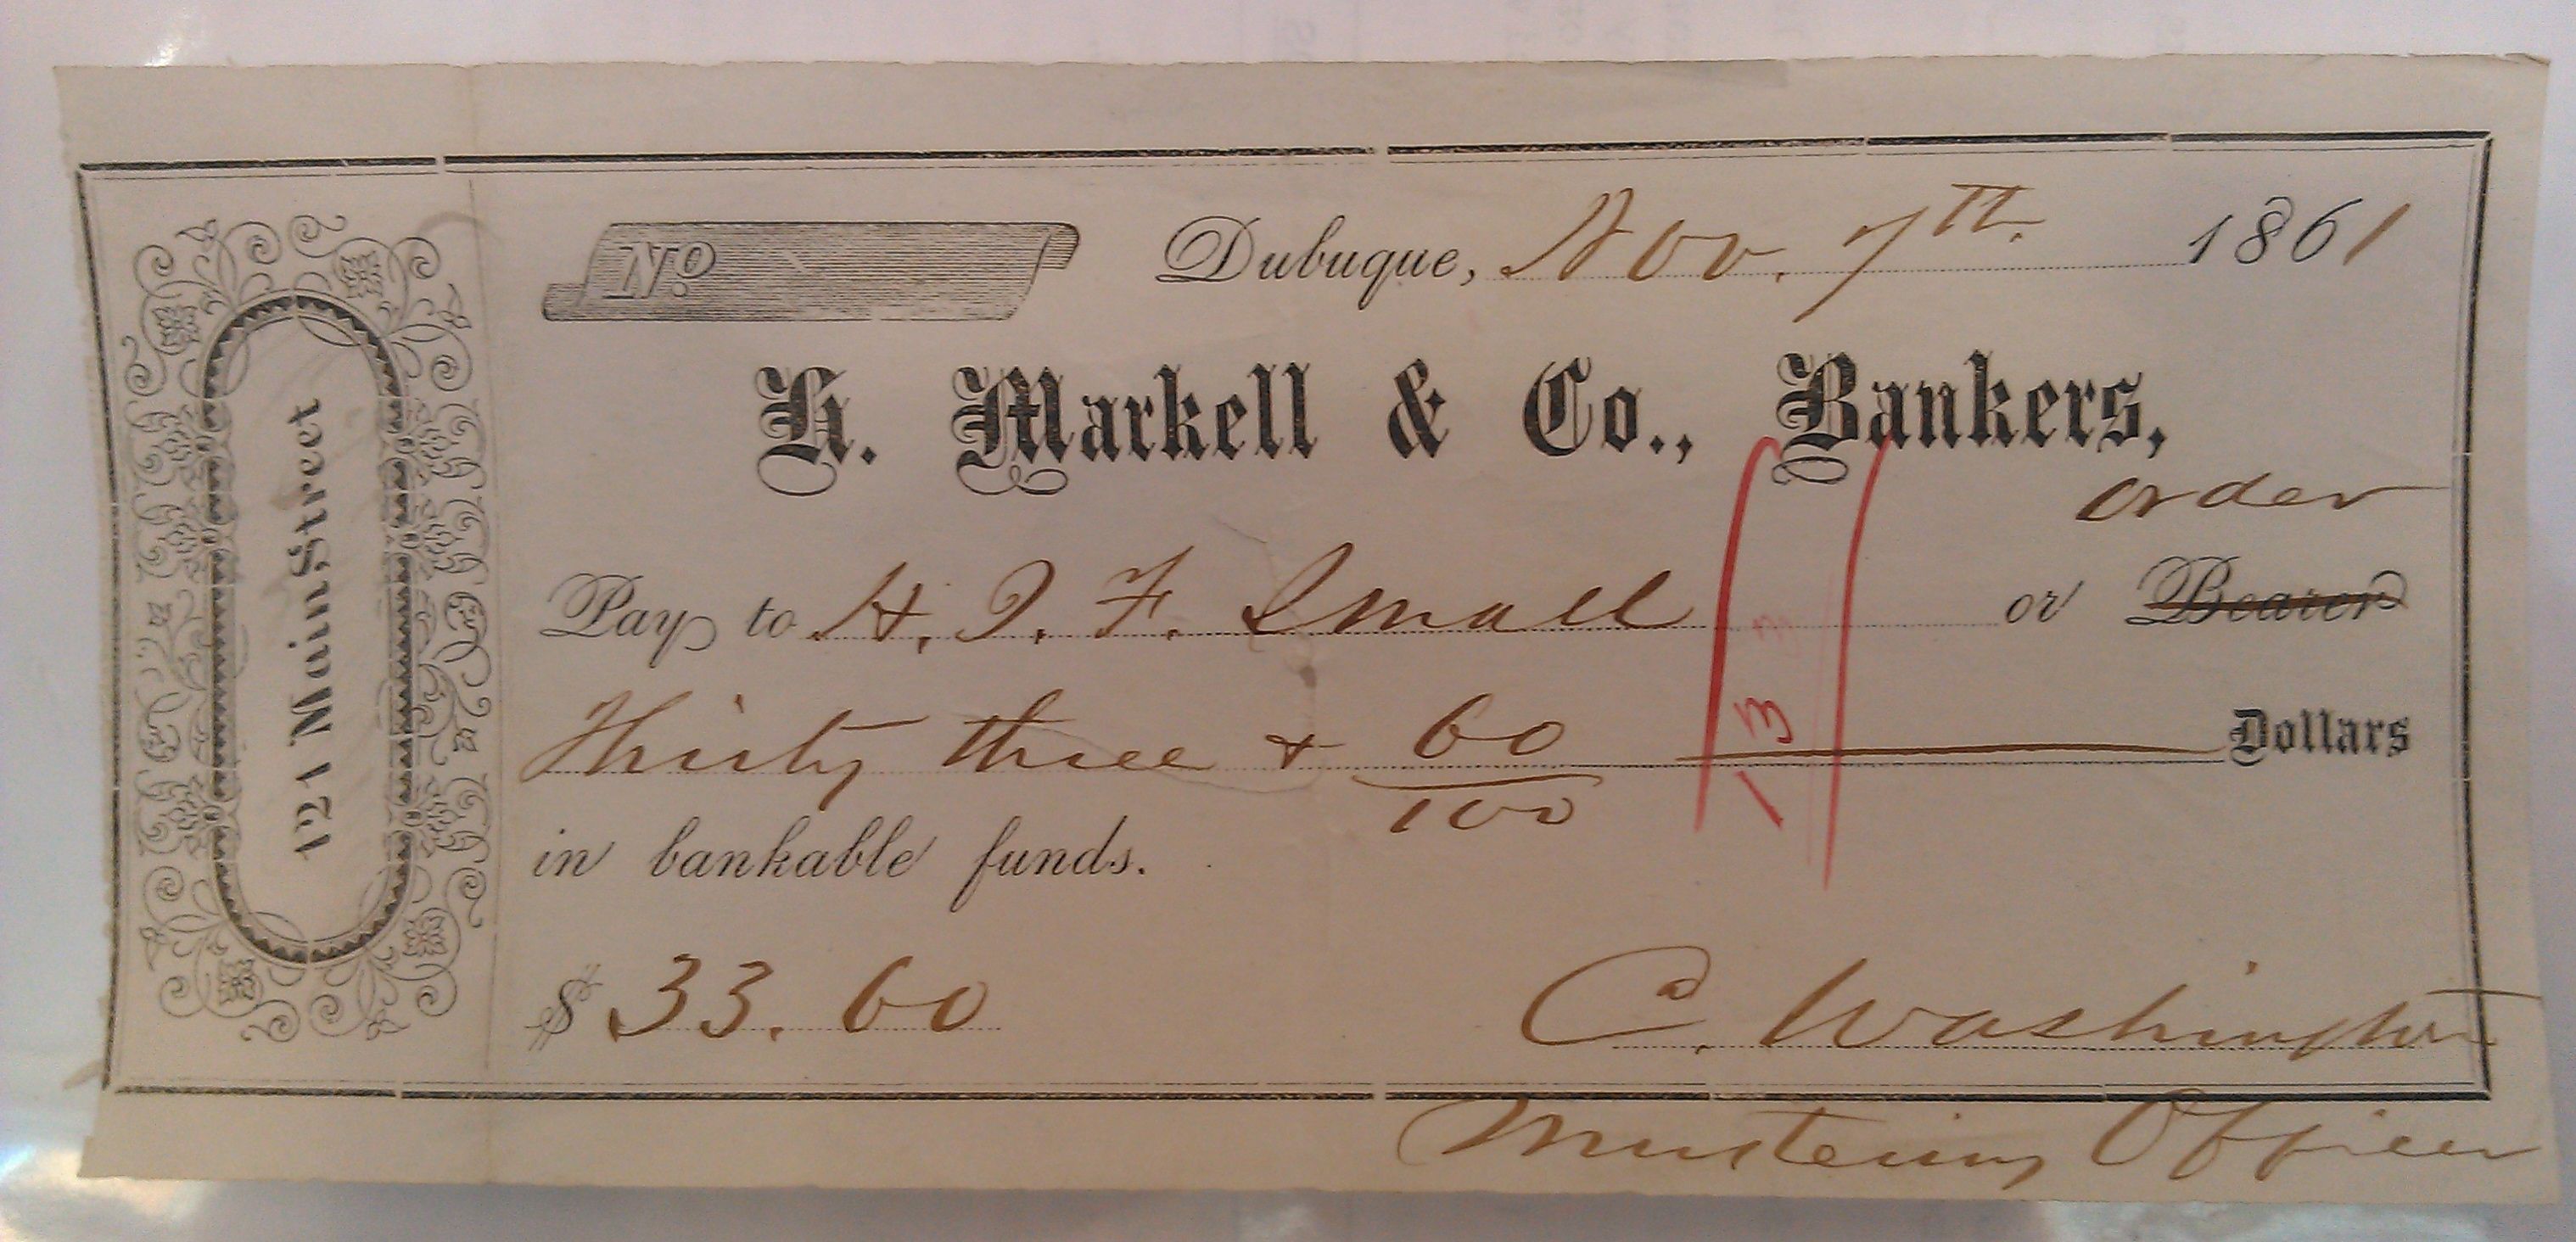 121 Main Street
No.
Dubuque, Nov. 7th. 1861
H. Markell & Co., Bankers,
order
Pay to H. I. F. Small or Bearer
Thirty three & 60/100 Dollars
in bankable funds.
$ 33.60
C. Washington
Mustering Officer
133